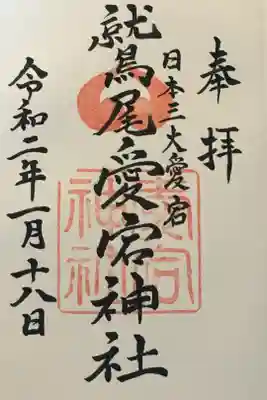 奉拝
日本三大愛宕
鷲尾愛宕神社
令和二年一月十八日